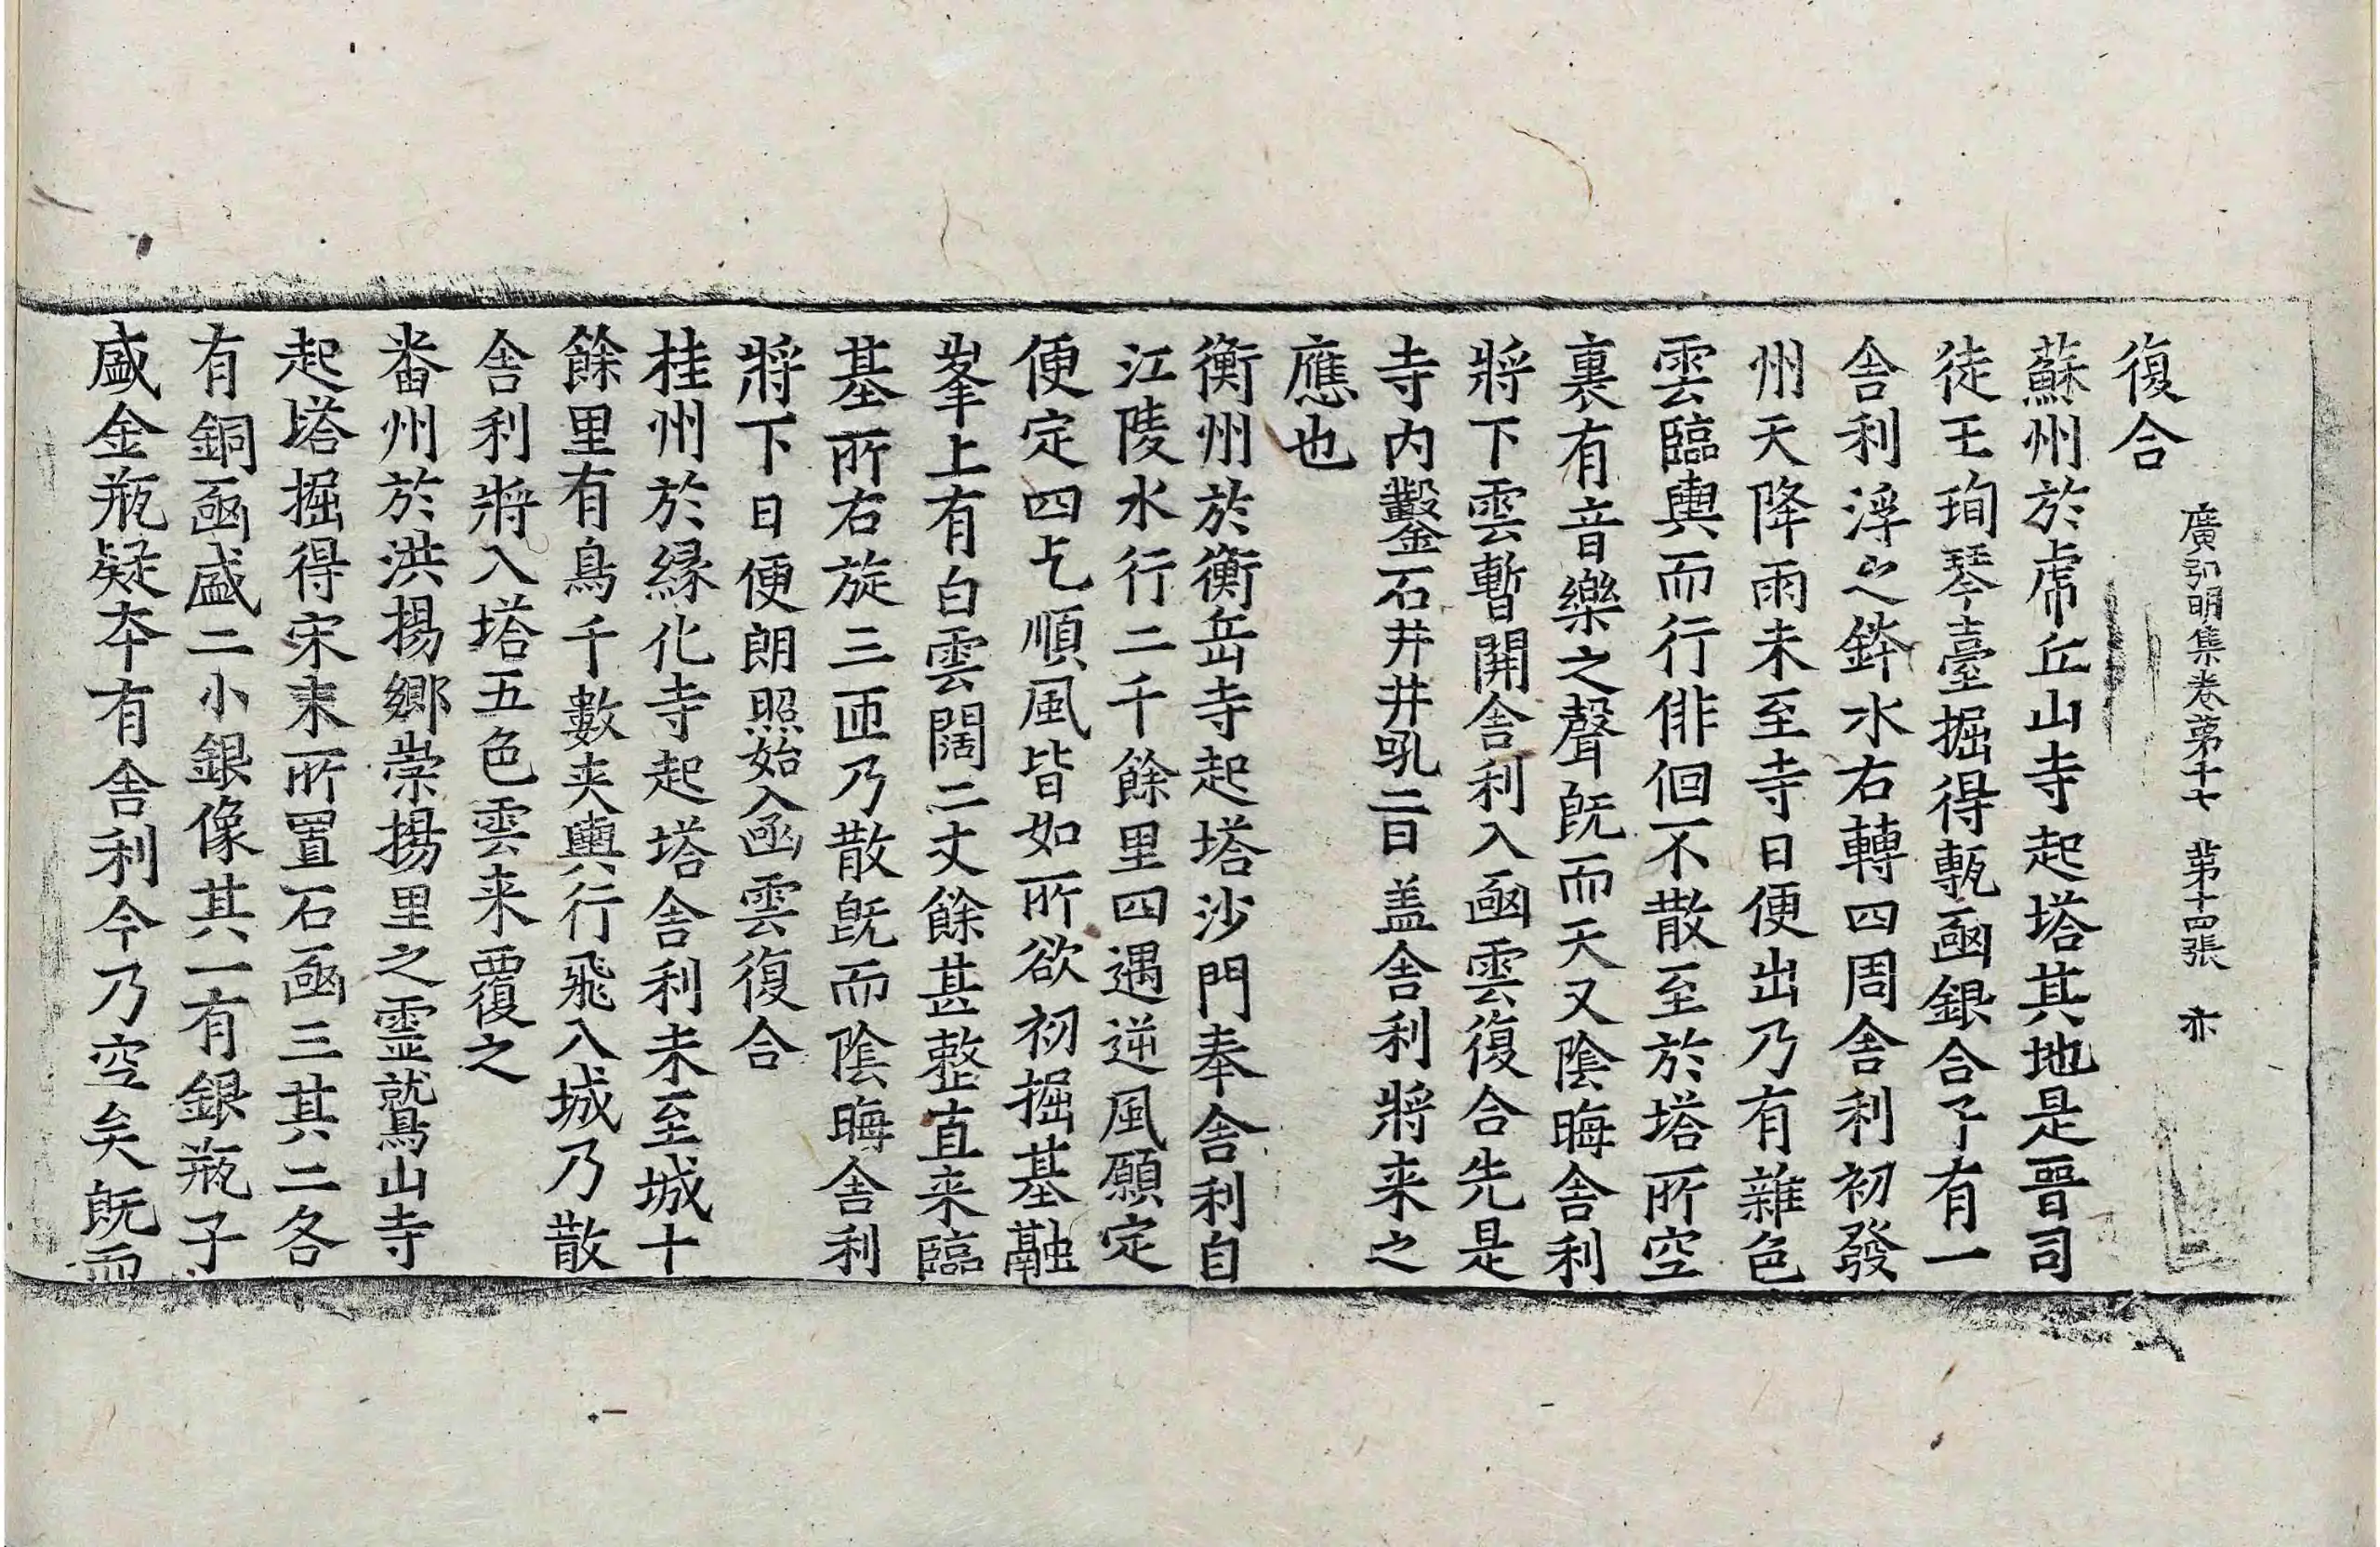 復合
廣弘明集卷第十七 第十四張 亦
蘇州於虎丘山寺起塔其地是晉司
徒王珣琴臺掘得甎函銀合子有一
舎利浮之鉢水右轉四周舎利初發
州天降雨未至寺日便出乃有雜色
雲臨輿而行俳佪不散至於塔所空
裏有音樂之聲旣而天又陰晦舎利
將下雲暫開舎利入函雲復合先是
寺内鑿石井井吼二日盖舎利將来之
應也
衡州於衡岳寺起塔沙門奉舎利自
江陵水行二千餘里四遇逆風願定
便定四乞順風皆如所欲初掘基融
峯上有白雲闊二丈餘甚整直来臨
基所右旋三匝乃散旣而陰晦舎利
將下日便朗照始入函雲復合
桂州於縁化寺起塔舎利未至城十
餘里有鳥千數夾輿行飛入城乃散
舎利將入塔五色雲来覆之
番州於洪楊鄉崇楊里之靈鷲山寺
起塔掘得宋末所置石函三其二各
有銅函盛二小銀像其一有銀瓶子
盛金瓶疑本有舎利今乃空矣旣而